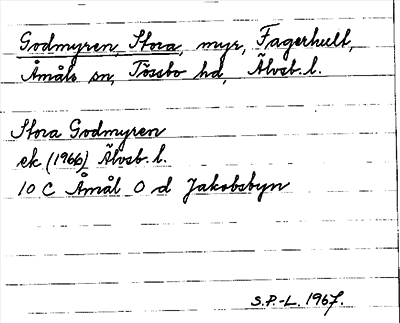 Godmyren, Stora, myr, Fagerhult,
Åmåls sn, Tössbo hd, Älvsb. l.
Stora Godmyren
ek (1966) Älvsb. l.
10 C Åmål O d Jakobsbyn
S.P.-L. 1967.